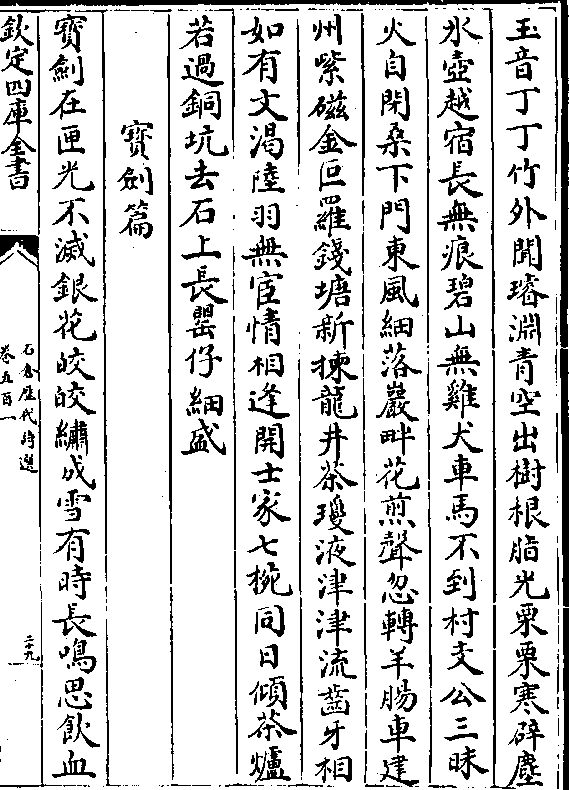 玉音丁丁竹外聞璿淵青空出樹根脂光栗栗寒辟塵
氷壺越宿長無痕碧山無雞犬車馬不到村支公三昧
火自閑桑下門東風細落巖畔花煎聲忽轉羊腸車建
州紫磁金叵羅錢塘新揀龍井茶瓊液津津流齒牙相
如有文渴陸羽無宦情相逢開士家七椀同日傾茶爐
若過銅坑去石上長罌仔細盛
寶劍篇
寶劍在匣光不滅銀花皎皎繡成雪有時長鳴思飲血
欽定四庫全書
石倉歷代詩選
卷五百一
二十九